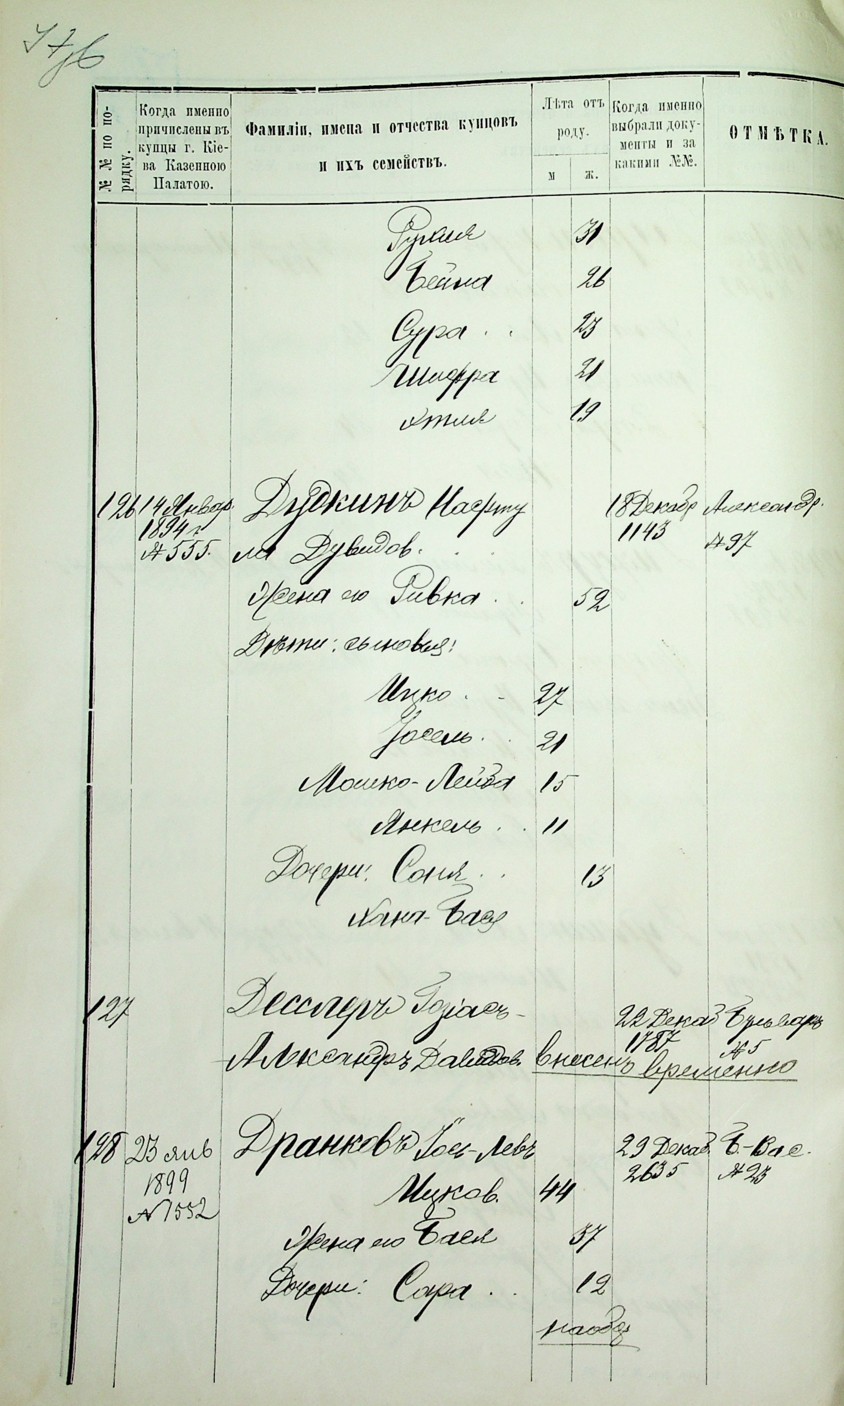 № № по по-
рядку.
Когда именно
причислены въ
купцы г. Кіе-
ва Казенною
Палатою.
Фамиліи, имена и отчества купцовъ
и ихъ семействъ.
Лѣта отъ
роду.
м
ж.
Когда именно
выбрали доку-
менты и за
какими №№.
ОТМѢТКА.
31
Бейна 26
Сура . . 23
Шифра 21
Хтля 19
126 14 Январ. Дудкинъ Нафту 18 Декабр Александр.
1894 г. 1143 № 97
№ 555. ла Дувидов. . .
Жена его Ривка . . 52
Дѣти: сыновья:
Ицко . . 27
Іосель . . 21
Мошко-Лейба 15
Янкель . . 11
Дочери: Соня . . 13
Хана-Бася
127 Десслеръ Іозіасъ- 22 Декаб Бульваръ
1787 № 5
Александръ Давидов. внесенъ временно
128 23 янв Дранковъ Іось-Левъ 29 Декаб. Б.-Вас.
1899 2635 № 23
№ 1552 Ицков. 44
Жена его Бася 37
Дочери: Сара . . 12
наобор